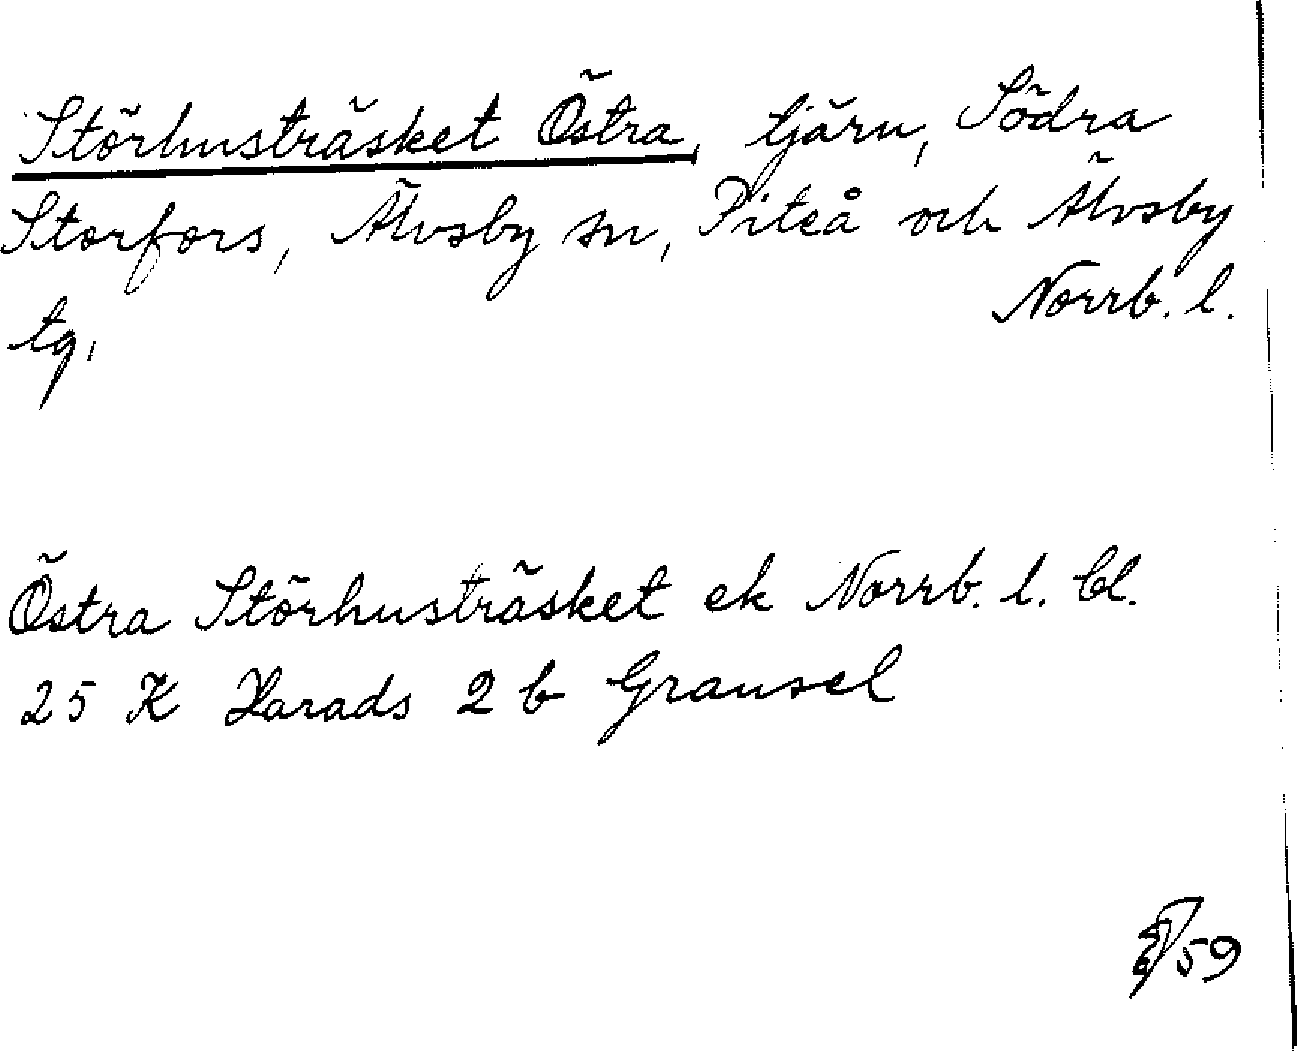 Störhusträsket Östra, tjärn, Södra
Storfors, Älvsby sn, Piteå och Älvsby
tg, Norrb. l.
Östra Störhusträsket ek Norrb. l. bl.
25 K Harads 2 b Gransel
59